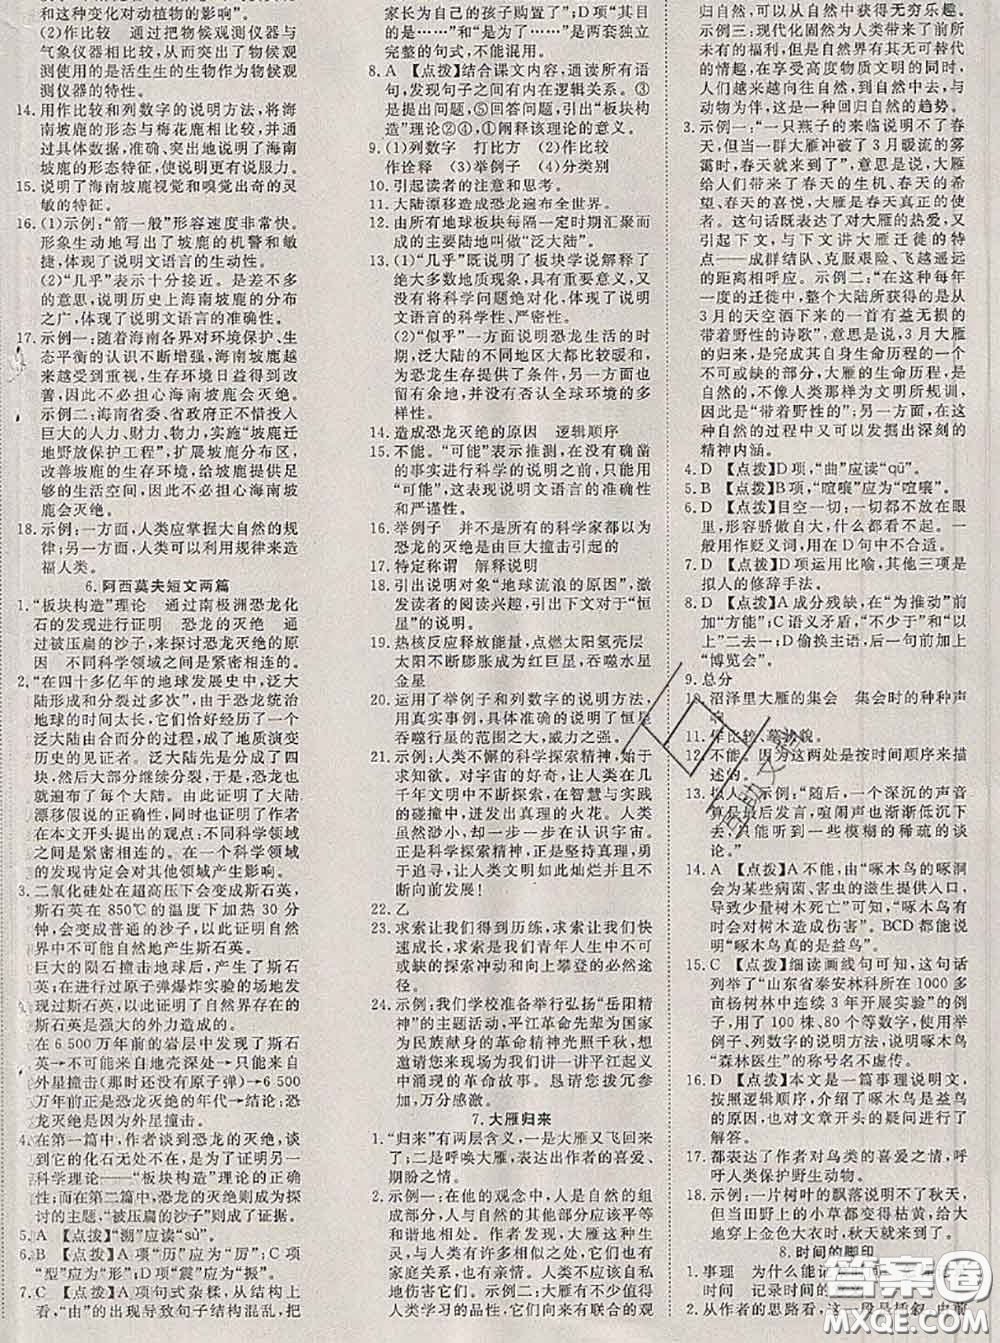 和这种变化对动植物的影响”。
(2)作比较　通过把物候观测仪器与
气象仪器相比较,从而突出了物候观
测使用的是活生生的生物作为物候观
测仪器的特性。
14. 用作比较和列数字的说明方法,将海
南坡鹿的形态与梅花鹿相比较,并通
过具体数据,准确、突出地说明了海南
坡鹿的形态特征,使说明更有说服力。
15. 说明了海南坡鹿视觉和嗅觉出奇的灵
敏的特征。
16. (1)示例:“箭一般”形容速度非常快。
形象生动地写出了坡鹿的机警和敏
捷,体现了说明文语言的生动性。
(2)“几乎”表示十分接近。是差不多
的意思,说明历史上海南坡鹿的分布
之广,体现了说明文语言的准确性。
17. 示例一:随着海南各界对环境保护、生
态平衡的认识不断增强,海南坡鹿越
来越受到重视,生存环境日益得到改
善,因此不必担心海南坡鹿会灭绝。
示例二:海南省委、省政府正不惜投入
巨大的人力、财力、物力,实施“坡鹿迁
地野放保护工程”,扩展坡鹿分布区,
改善坡鹿的生存环境,给坡鹿提供足
够的生活空间,因此不必担心海南坡
鹿会灭绝。
18. 示例:一方面,人类应掌握大自然的规
律;另一方面,人类可以利用规律来造
福人类。
6. 阿西莫夫短文两篇
1. “板块构造”理论　通过南极洲恐龙化
石的发现进行证明　恐龙的灭绝　通
过被压扁的沙子,来探讨恐龙灭绝的原
因　不同科学领域之间是紧密相连的。
2. “在四十多亿年的地球发展史中,泛大
陆形成和分裂过多次”,由于恐龙统治
地球的时间太长,它们便经历了一个
泛大陆由合而分的过程,成了地质演变
历史的见证者。泛大陆先是分成了四
块,然后大部分继续分裂,于是,恐龙也
就遍布了每个大陆。由此证明了大陆
漂移假说的正确性,同时也印证了作者
在本文开头提出的观点:不同科学领域
之间是紧密相连的。在一个科学领域
的发现肯定会对其他领域产生影响。
3. 二氧化硅处在超高压下会变成斯石英,
斯石英在850℃的温度下加热30分
钟,会变成普通的沙子,以此证明大自
然界中不可能自然地产生斯石英。
巨大的陨石撞击地球后,产生了斯石
英,在进行过原子弹爆炸实验的场地发
现过斯石英,以此证明了自然界存在的
斯石英是强大的外力造成的。
在6 500万年前的岩层中发现了斯石
英→不可能来自地壳深处→只能来自
外星撞击(那时还没有原子弹)→6 500
万年前正是恐龙灭绝的年代→结论:恐
龙灭绝是因为外星撞击。
4. 在第一篇中,作者谈到恐龙的灭绝,谈
到它的化石无处不在。正是证明了另一
科学理论——“板块构造”理论的正确
性;而在第二篇中,恐龙的灭绝则成了探
讨的主题,“被压扁的沙子”则成了证据。
5. A　【点拨】“溯”应读“sù”。
6. B　【点拨】A项“历”应为“厉”;C项
“型”应为“形”;D项“震”应为“振”。
7. C　【点拨】A项句式杂糅,从结构上
看,“由”的出现导致句子结构混乱,把
家长为自己的孩子购置了”;D项“其目
的是……”和“是为了……”是两套独立
完整的句式,不能混用。
8. A　【点拨】结合课文内容,通读所有语
句,发现句子之间有内在逻辑关系。③
是提出问题,⑤回答问题,引出“板块构
造”理论②④,①阐释该理论的意义。
9. (1)列数字　打比方　(2)作比较
作诠释　(3)举例子　(4)分类别
10. 引起读者的注意和思考。
11. 大陆漂移造成恐龙遍布全世界。
12. 由所有地球板块每隔一定时期汇聚而
成的主要陆地叫做“泛大陆”。
13. (1)“几乎”既说明了板块学说解释了
绝大多数地质现象,具有巨大意义,又
没有将科学问题绝对化,体现了说明
文语言的科学性、严密性。
(2)“似乎”一方面说明恐龙生活的时
期,泛大陆的不同地区大都比较暖和,
为恐龙生存提供了条件,另一方面也
留有余地,并没有否认全球环境的多
样性。
14. 造成恐龙灭绝的原因　逻辑顺序
15. 不能。“可能”表示推测,在没有确凿
的事实进行科学的说明之前,只能用
“可能”,体现了说明文语言的准确性
和严谨性。
16. 举例子　并不是所有的科学家都以为
恐龙的灭绝是由巨大撞击引起的
17. 特定称谓　解释说明
18. 引出说明对象“地球流浪的原因”,激
发读者的阅读兴趣,引出下文对于“恒
星”的说明。
19. 热核反应释放能量,点燃太阳氢壳层
太阳不断膨胀成为红巨星,吞噬水星
金星
20. 运用了举例子和列数字的说明方法,
用真实事例,具体准确地说明了恒星
吞噬行星的范围之大,威力之强。
21. 示例:人类不懈的科学探索精神,始于
求知欲。对宇宙的好奇,让人类在几
千年文明中不断探索,在智慧与实践
的碰撞中,迸发出真理的火花。人类
虽然渺小,却一步一步在认识宇宙。
正是科学探索精神,对真理的渴望,勇
于追寻,让人类文明如此灿烂并且不
断向前发展!
22. 乙
23. 求索让我们得到历练,求索让我们快
速成长,求索为我们青年人生中不可
或缺的探索冲动和向上攀登的必然途
径。
24. 示例:我们学校准备举行弘扬“岳阳精
神”的主题活动,平江革命先辈为国家
为民族献身的革命精神光照千秋,想
邀请您来现场为我们讲一讲平江起义
中涌现的革命故事。恳请您拨冗参
加,万分感激。
7. 大雁归来
1. “归来”有两层含义,一是大雁又飞回来
了;二是呼唤大雁,表达出作者的喜爱、
期盼之情。
2. 示例一:在他的观念中,人是自然的组
成部分,与自然的其他部分应该平等
和谐地相处。作者发现,大雁这种生
灵,与人类有许多相似之处,它们也有
家庭关系,也有亲情。尽管不能说是
人类学习的品性,它们向来有联合的观
归自然,在自然界里自有无穷乐趣。
示例三:现代化固然为人类带来了前所
未有的福利,但自然界有其无可替代的
情致,在享受高度物质文明的同时,
人们越来越向往自然,到自然中去,与
动物为伴,这是一种回归自然的趋势。
3. 示例一:“一只燕子的来临说明不了春
天,但当一群大雁冲破了3月暖流的雾
霭时,春天就来到了”,意思是说,大雁
代表了春天的生机、春天的活力、春天的
希望、春天的喜悦,大雁是春天真正的使
者。这句话既表达了对大雁的热爱,又
引起下文,与下文讲大雁迁徙的特点
——成群结队、克服艰险、飞越遥远
的距离相呼应。示例二:“在这种每年
一度的迁徙中,整个大陆所获得的是从
3月的天空洒下来的一首有益无损的
带着野性的诗歌”,意思是说,3月大雁的
归来,是完成其自身生命历程的一个
不可或缺的部分,大雁的生命历程,是
自然的,不像人类那样为文明所规训,
因此是“带着野性的”;另一方面,在自
然的这种过程中又可以发掘出深刻的
精神内涵。
4. D　【点拨】D项,“曲”应读“qū”。
5. B　【点拨】B项,“喧嚷”应为“喧嚷”。
6. D　【点拨】目空一切:一切都不放在眼
里,形容骄傲自大,什么都看不起。一
般用作贬义词,用在D句中不合适。
7. D　【点拨】D项运用比喻,其他三项
是拟人的修辞手法。
8. D　【点拨】A成分残缺,在“为推动”前
加“方能”;C语义矛盾,“不少于”和“以
上”二去一;D偷换主语,后一句前加上
“博览会”。
9. 总分
10. 沼泽里大雁的集会　集会时的种种声
音
11. 作比较、摹状貌。
12. 不能。因为这两处是按时间顺序来描
述的。
13. 拟人。示例:“随后,一个深沉的声音
算是最后发言,喧闹声也渐渐低沉下
去,只能听到一些模糊的稀疏的谈
论。”
14. A　【点拨】A不能,由“啄木鸟的啄洞
会为某些病菌、害虫的滋生提供入口,
导致少量树木死亡”可知,“啄木鸟有
时会对树木造成伤害”。BCD都能说
明“啄木鸟真的是益鸟”。
15. C　【点拨】细读画线句可知,这句话
列举了“山东省泰安林科所在1000多
亩杨树林中连续3年开展实验”的例
子,用了100株、80个等数字,使用了举
例子、列数字的说明方法,说明啄木鸟
“森林医生”的称号名不虚传。
16. D　【点拨】本文是一篇事理说明文,
按照逻辑顺序,介绍了啄木鸟是益鸟
的原因,并对文章开头的疑问进行了
解答。
17. 都表达了作者对鸟类的喜爱之情,呼
吁人类保护野生动物。
18. 示例:一片树叶的飘落说明不了秋天,
但当田野上的小草都变得枯黄,给大
地穿上金色大衣时,秋天就来到了。
8. 时间的脚印
1. 事理　为什么能记
时间　记录时间的
2. 从作者的思路看,这一段是插叙,由前
答案圈
MXQE.COM